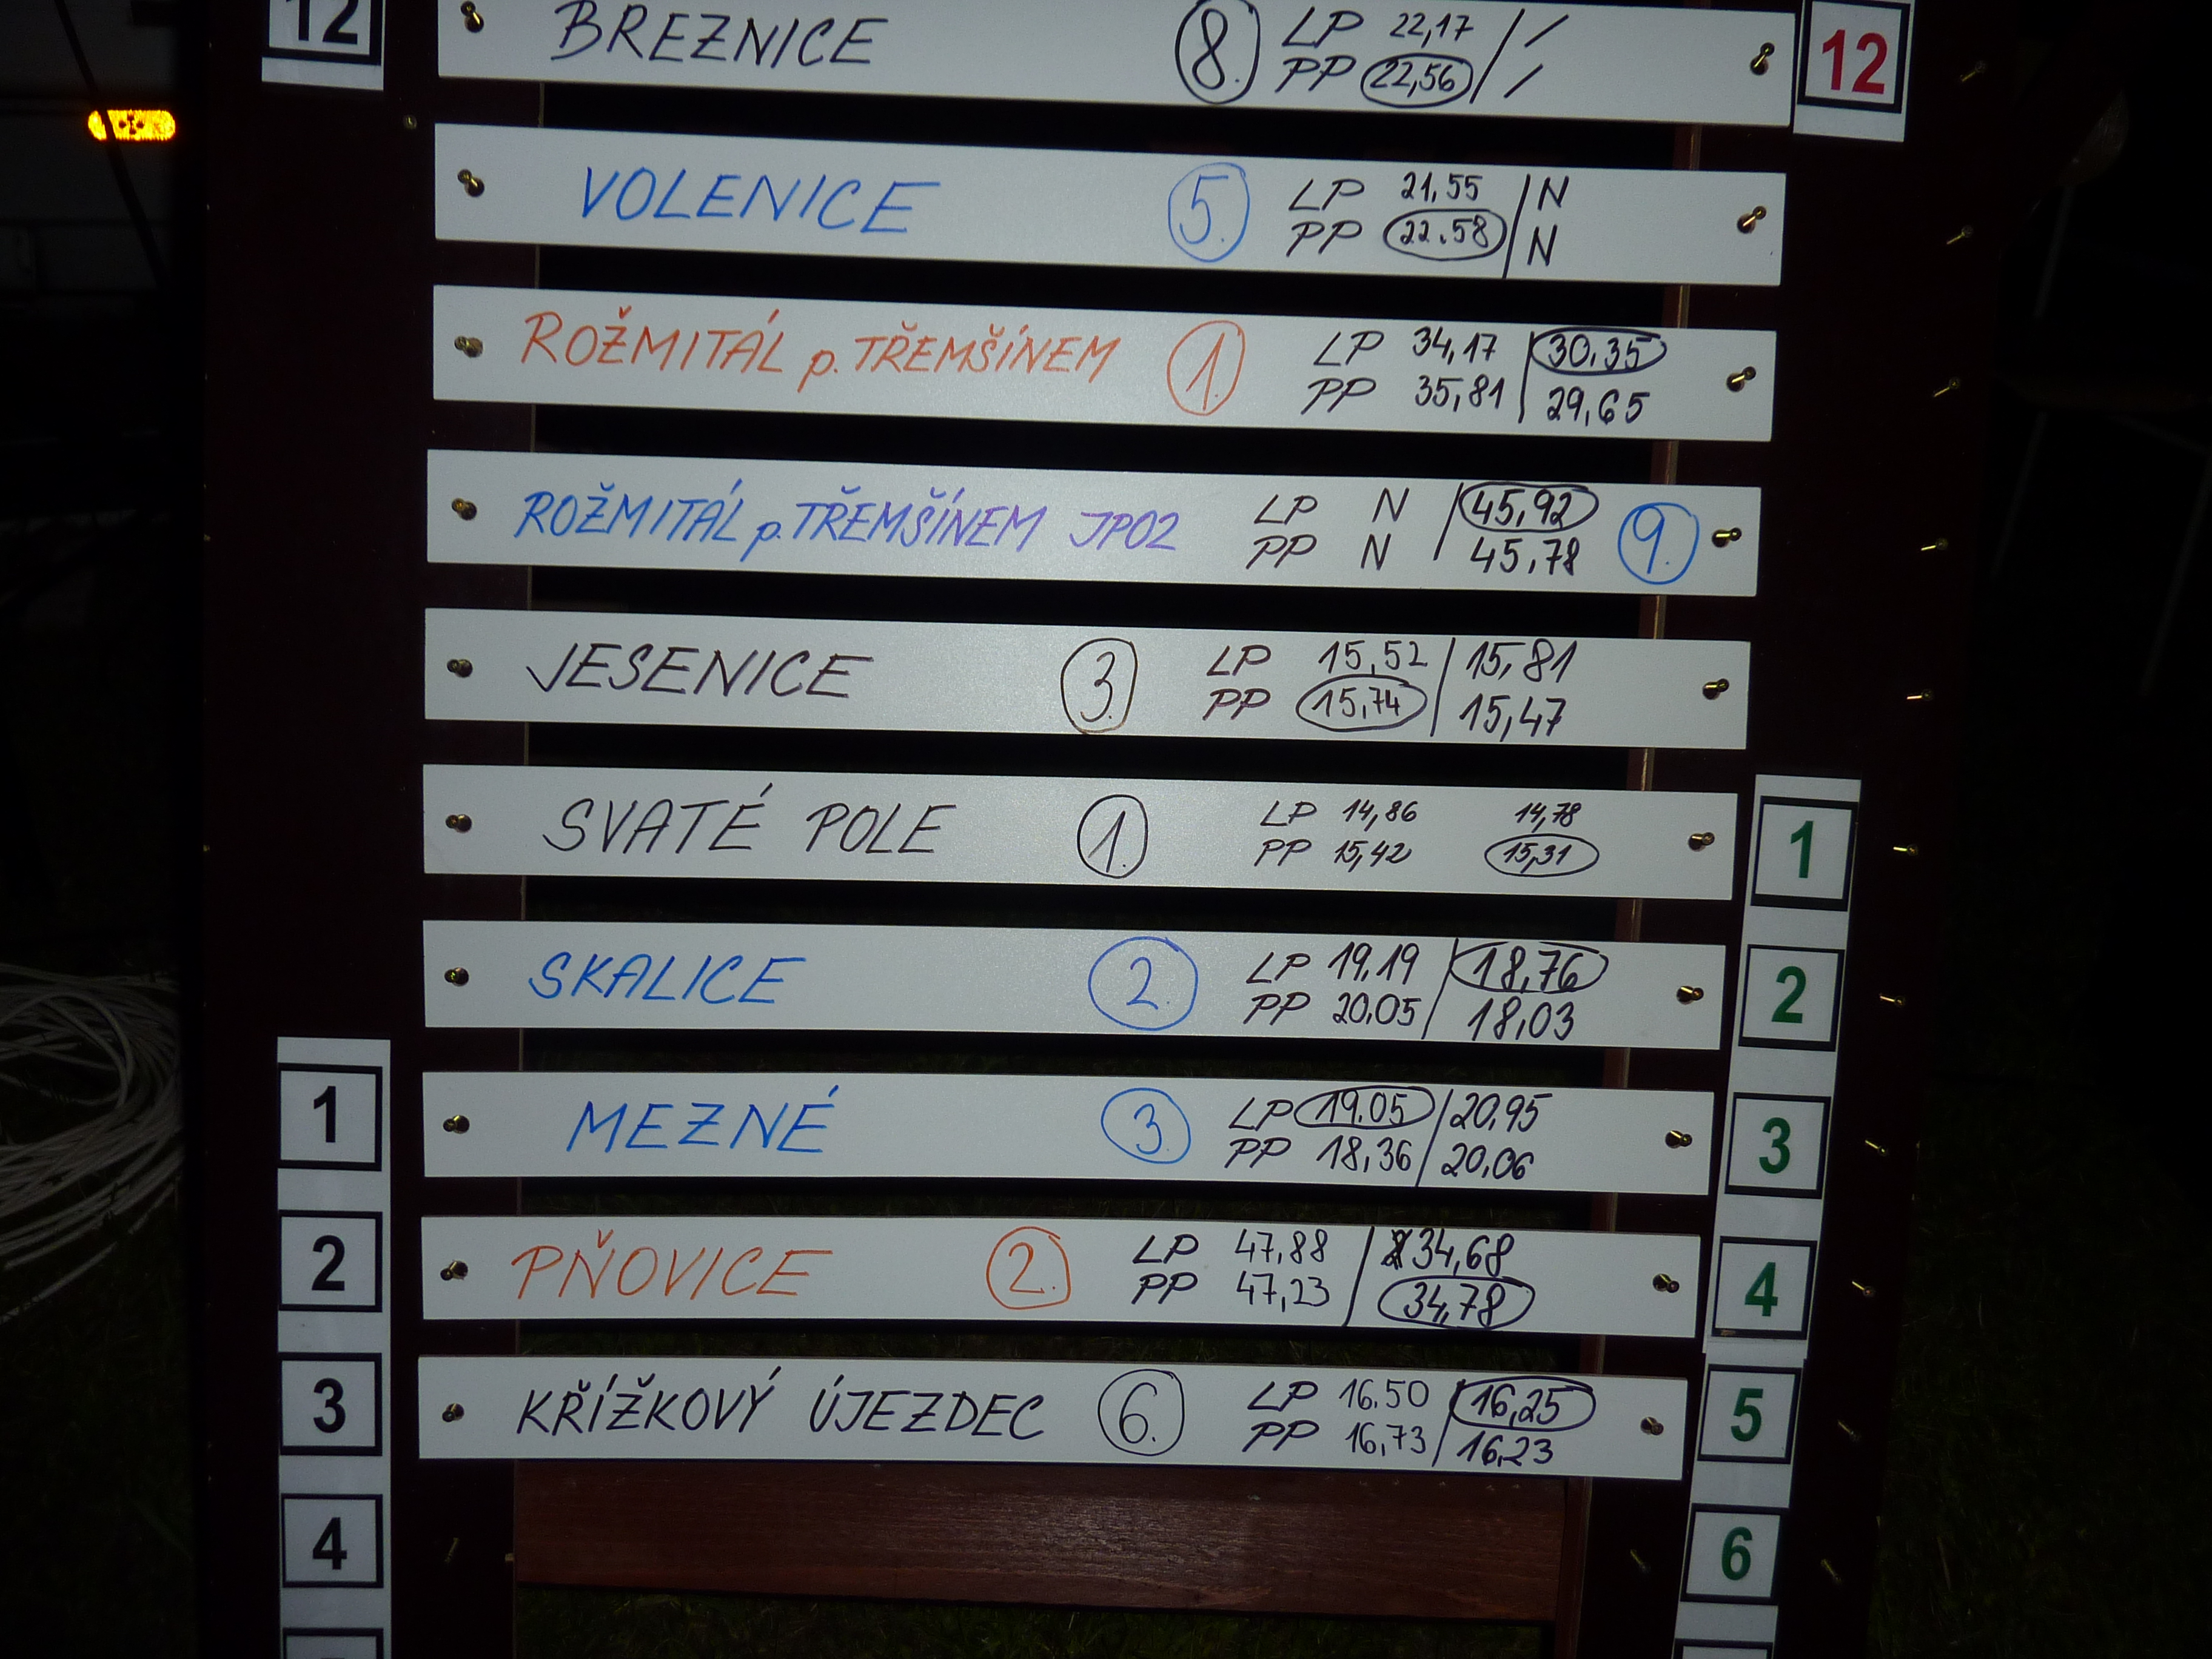 12 BREZNICE 8. LP 22,17 / / 12
PP 22,56 / /
VOLENICE 5. LP 21,55 / N
PP 22.58 / N
ROŽMITÁL p. TŘEMŠÍNEM 1. LP 34,17 / 30,35
PP 35,81 / 29,65
ROŽMITÁL p. TŘEMŠÍNEM JPO2 LP N / 45,92 9.
PP N / 45,78
JESENICE 3. LP 15,52 / 15,81
PP 15,74 / 15,47
SVATÉ POLE 1. LP 14,86 14,78 1
PP 15,42 15,31
SKALICE 2. LP 19,19 / 18,76 2
PP 20,05 / 18,03
1 MEZNÉ 3. LP 19.05 / 20,95 3
PP 18,36 / 20,06
2 PŇOVICE 2. LP 47,88 / 34,68 4
PP 47,23 / 34,78
3 KŘÍŽKOVÝ ÚJEZDEC 6. LP 16,50 / 16,25 5
PP 16,73 / 16,23
4 6